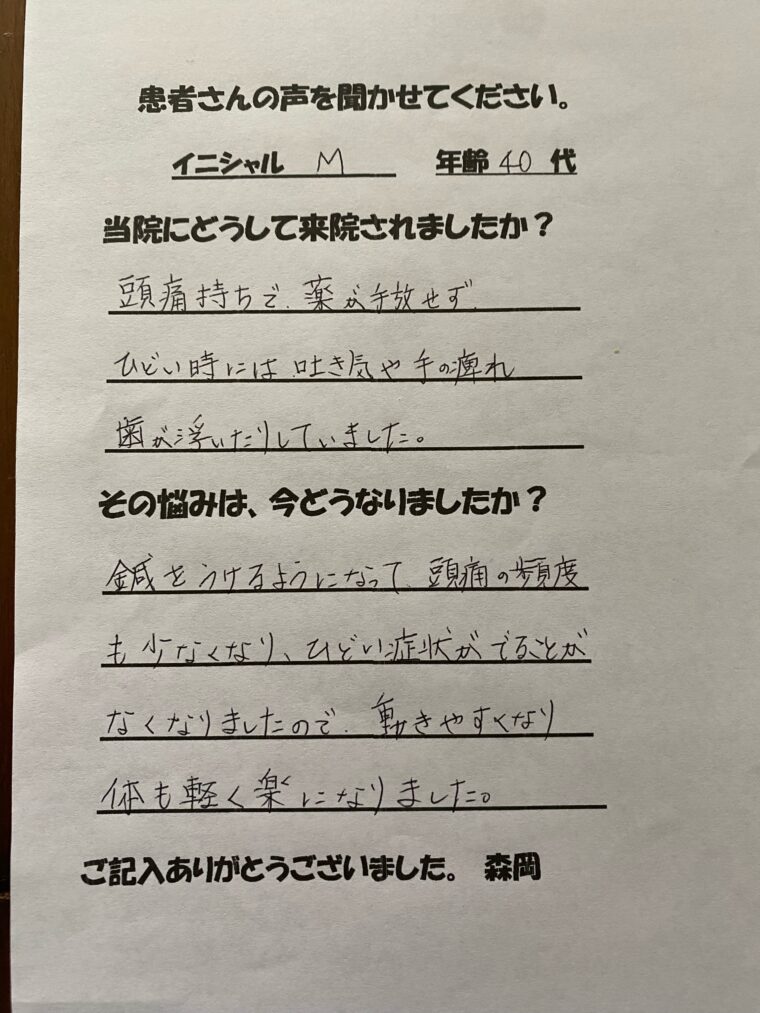 患者さんの声を聞かせてください。
イニシャル M 年齢 40 代
当院にどうして来院されましたか？
頭痛持ちで、薬が手放せず、
ひどい時には、吐き気や手の痺れ
歯が浮いたりしていました。
その悩みは、今どうなりましたか？
鍼をうけるようになって、頭痛の頻度
も少なくなり、ひどい症状がでることが
なくなりましたので、動きやすくなり
体も軽く楽になりました。
ご記入ありがとうございました。 森岡